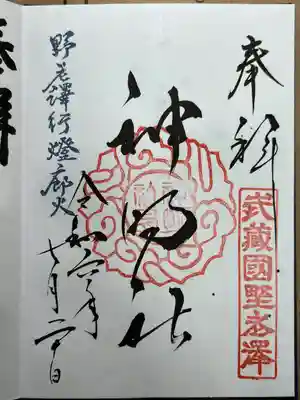 奉拝
武藏國野老澤
神明社
令和六年
七月二十日
野老澤行燈廊火